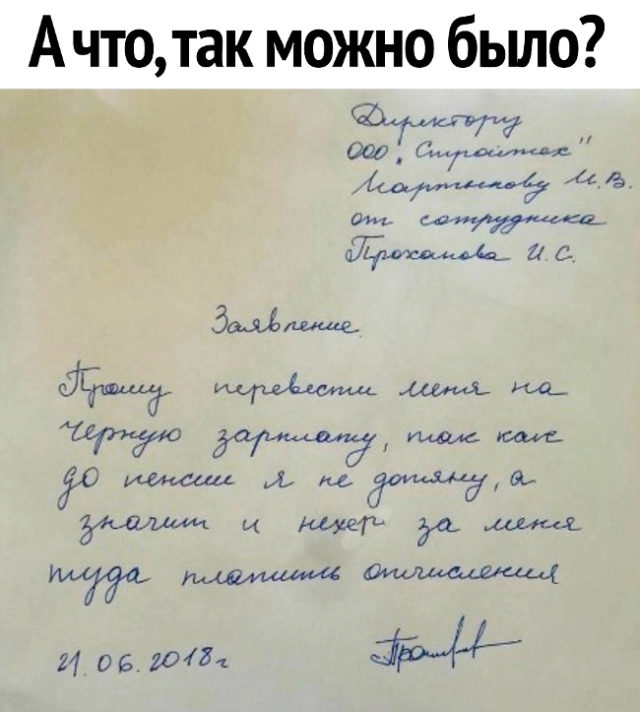 А что, так можно было?
Директору
ООО "Стройтех"
Мартынову И.В.
от сотрудника
Проханова И.С.
Заявление
Прошу перевести меня на
черную зарплату, так как
до пенсии я не дотяну, а
значит и нехер за меня
туда платить отчисления
21.06.2018г